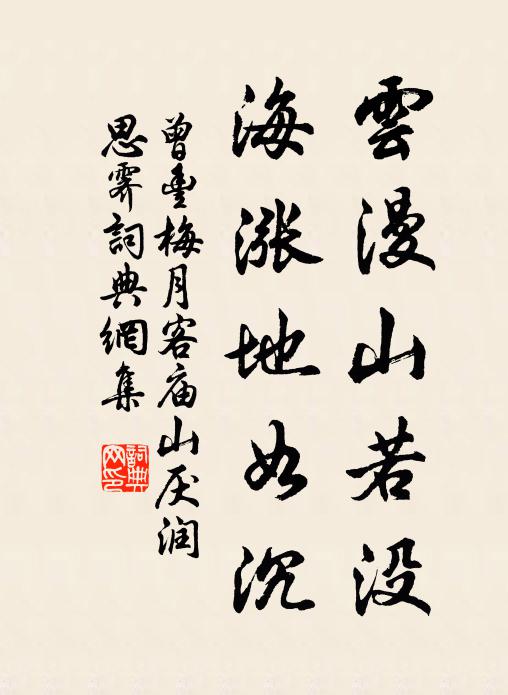 雲漫山若没
海漲地如沉
曾豐梅月客庙山厌润
思霁詞典網集
詞典网印